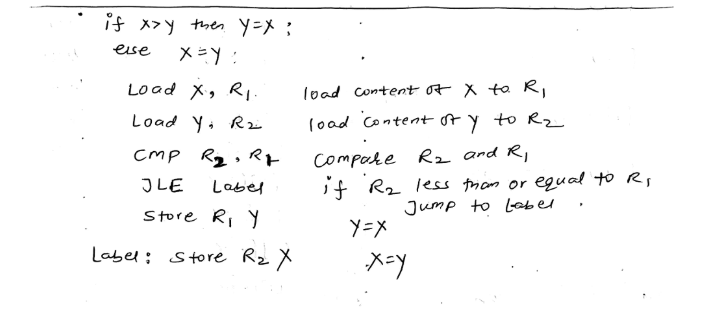 if X>Y then Y=X ;
else X=Y ;
Load X, R1. load content of X to R1
Load Y, R2 load content of Y to R2
CMP R2, R1 Compare R2 and R1
JLE Label if R2 less than or equal to R1
Jump to Label .
Store R1 Y Y=X
Label: Store R2 X X=Y